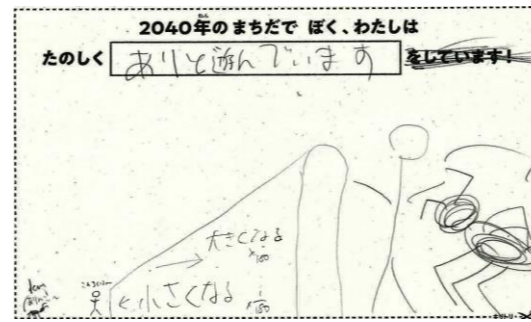 2040年のまちだで ぼく、わたしは
たのしく ありと遊んでいます をしています!
大きくなる
×100
小さくなる